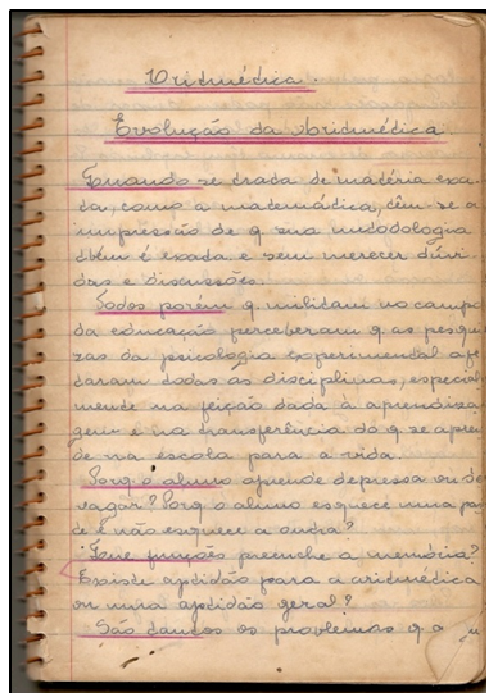 Aritmética.
Evolução da Aritmética
Quando se trata de matéria exa-
ta, como a matemática, têm-se a
impressão de q sua metodologia
tbém é exata e sem merecer dúvi-
das e discussões.
Todos porém q militam no campo
da educação perceberam q as pesqui
zas da psicologia experimental afe
taram todas as disciplinas, especial
mente na feição dada à aprendiza
gem e na transferência do q se apren
de na escola para a vida.
Porq o aluno aprende depressa ou de
vagar? Porq o aluno esquece uma par
te e não esquece a outra?
Que funções preenche a memória?
Existe aptidão para a aritmética
ou uma aptidão geral?
São tantos os problemas q a